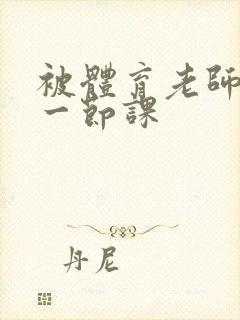 被體育老師
一節課
丹尼